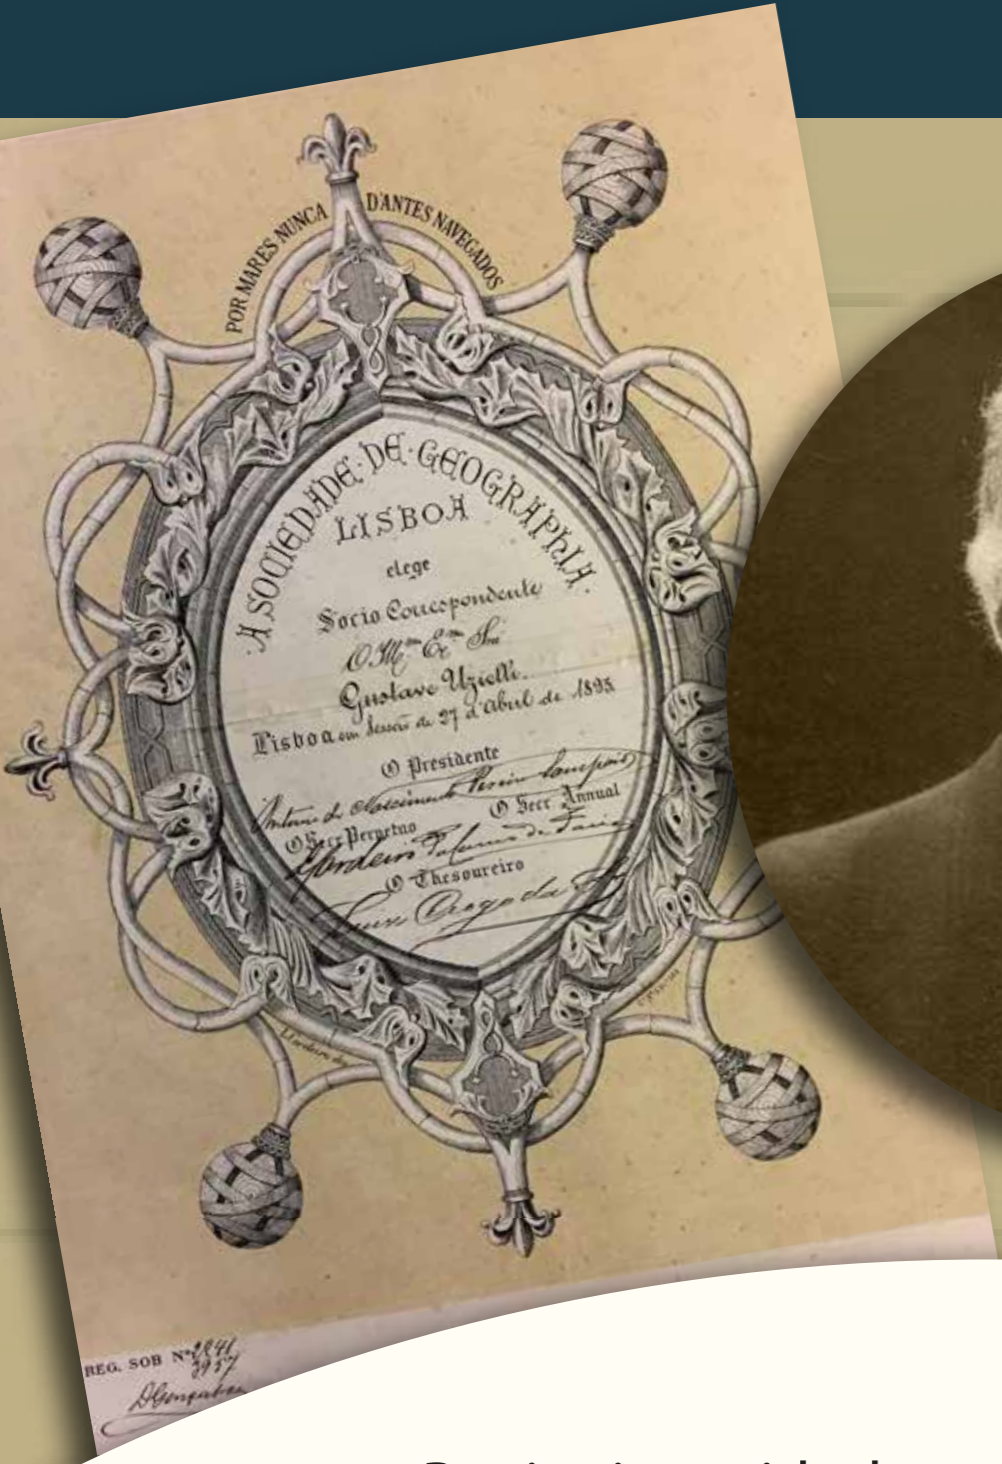 POR MARES NUNCA D'ANTES NAVEGADOS
A SOCIEDADE · DE · GEOGRAPHIA ·
LISBOA
elege
Socio Correspondente
O Ill.mo Ex.mo Snr
Gustavo Uzielli.
Lisboa em Sessão de 27 d'Abril de 1895
O Presidente
Antonio do Nascimento Pereira Sampaio
O Secr Annual
O Secr Perpetuo
Palermo de Faria
O Thesoureiro
REG. SOB Nº 2841
3957